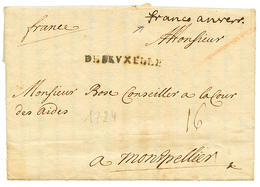 franco anvers
france
DEBRVXELLE
Monsieur
Monsieur Bose Conseiller a la Cour
des aides
1724
16
a montpellier